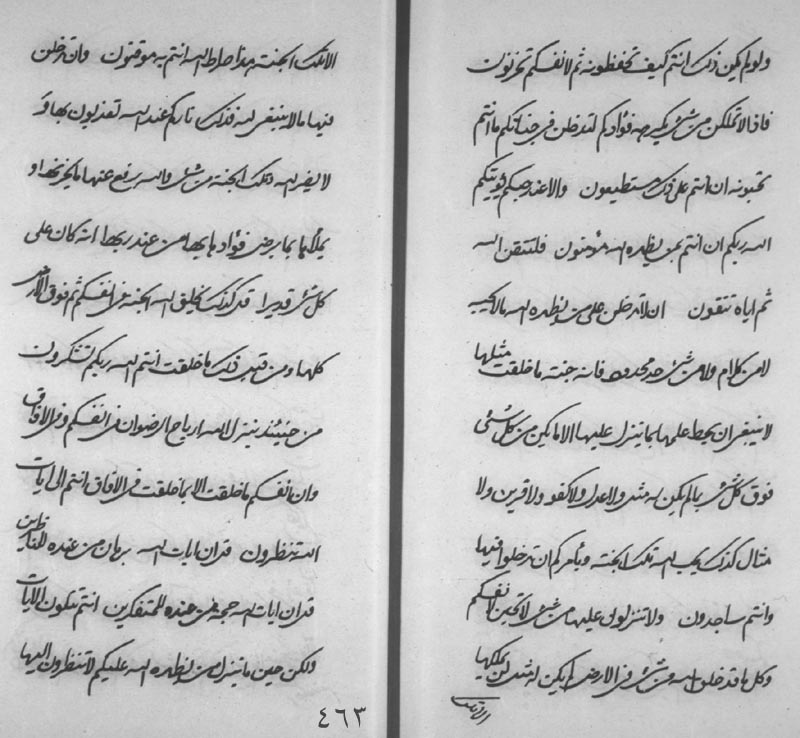 ولو لم يكن ذلك انتم كيف تحفظونه ثم لانفسكم تحزنون
فاذا لا تملكن من شئ يكبر به فؤادكم لتدخلن في جناتكم ما انتم
تحبونه ان انتم على ذلك مستطيعون والا عند حبكم
الله ربكم ان انتم بمن يظهره الله مؤمنون فلتتقن الله
ثم اياه تتقون ان لا تدخلن على من يظهره الله مالا يحبه
لا من كلام ولا من شئ حد محدود فانه جنته ما خلقت مثلها
لا ينبغي ان يحيط علمها بما يتنزل عليها الا ما يكن من كل شئ
فوق كل شئ بما لم يكن له مثل ولا عدل ولا كفو ولا قرين ولا
مثال كذلك يحب الله تلك الجنة ويأمركم ان تدخلوا فيها
وانتم ساجدون ولا تنزلون عليها من شئ لا تحبن لانفسكم
وكل ما قد خلق الله من شئ في الارض لم يكن له مثل لن يملكها
الا تلك الجنة هذا صراط الله انتم به موقنون وان تدخلن
فيها ما لا ينبغي لله فذلك ناركم عند الله تعذبون بها و
لا يغير الله تلك الجنة من شئ والله رافع عنها ما يحزنها و
يملأنها بما يرضى فؤاد ما بها من عند ربها انه كان على
كل شئ قديرا قل كذلك يخلق الله الجنة في انفسكم ثم فوق الارض
كلها ومن قبل ذلك ما خلقت انتم الله ربكم لتشكرون
من حينئذ يتنزل الله ارياح الرضوان في انفسكم وفي الافاق
وان انفسكم ما خلقت الا بما خلقت في الافاق انتم الى ايات
الله تنظرون قل ان ايات الله برهان من عنده للناظرين
قل ان ايات الله حجة من عنده للمتفكرين انتم تتلون الايات
ولكن حين ما يتنزل من يظهره الله عليكم لا تنظرون اليها
٤٦٣